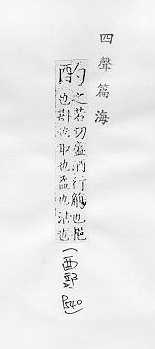 四聲篇海
酌
之若切盛酒行觴也挹
也取也益也沾也
(酉部 P540)